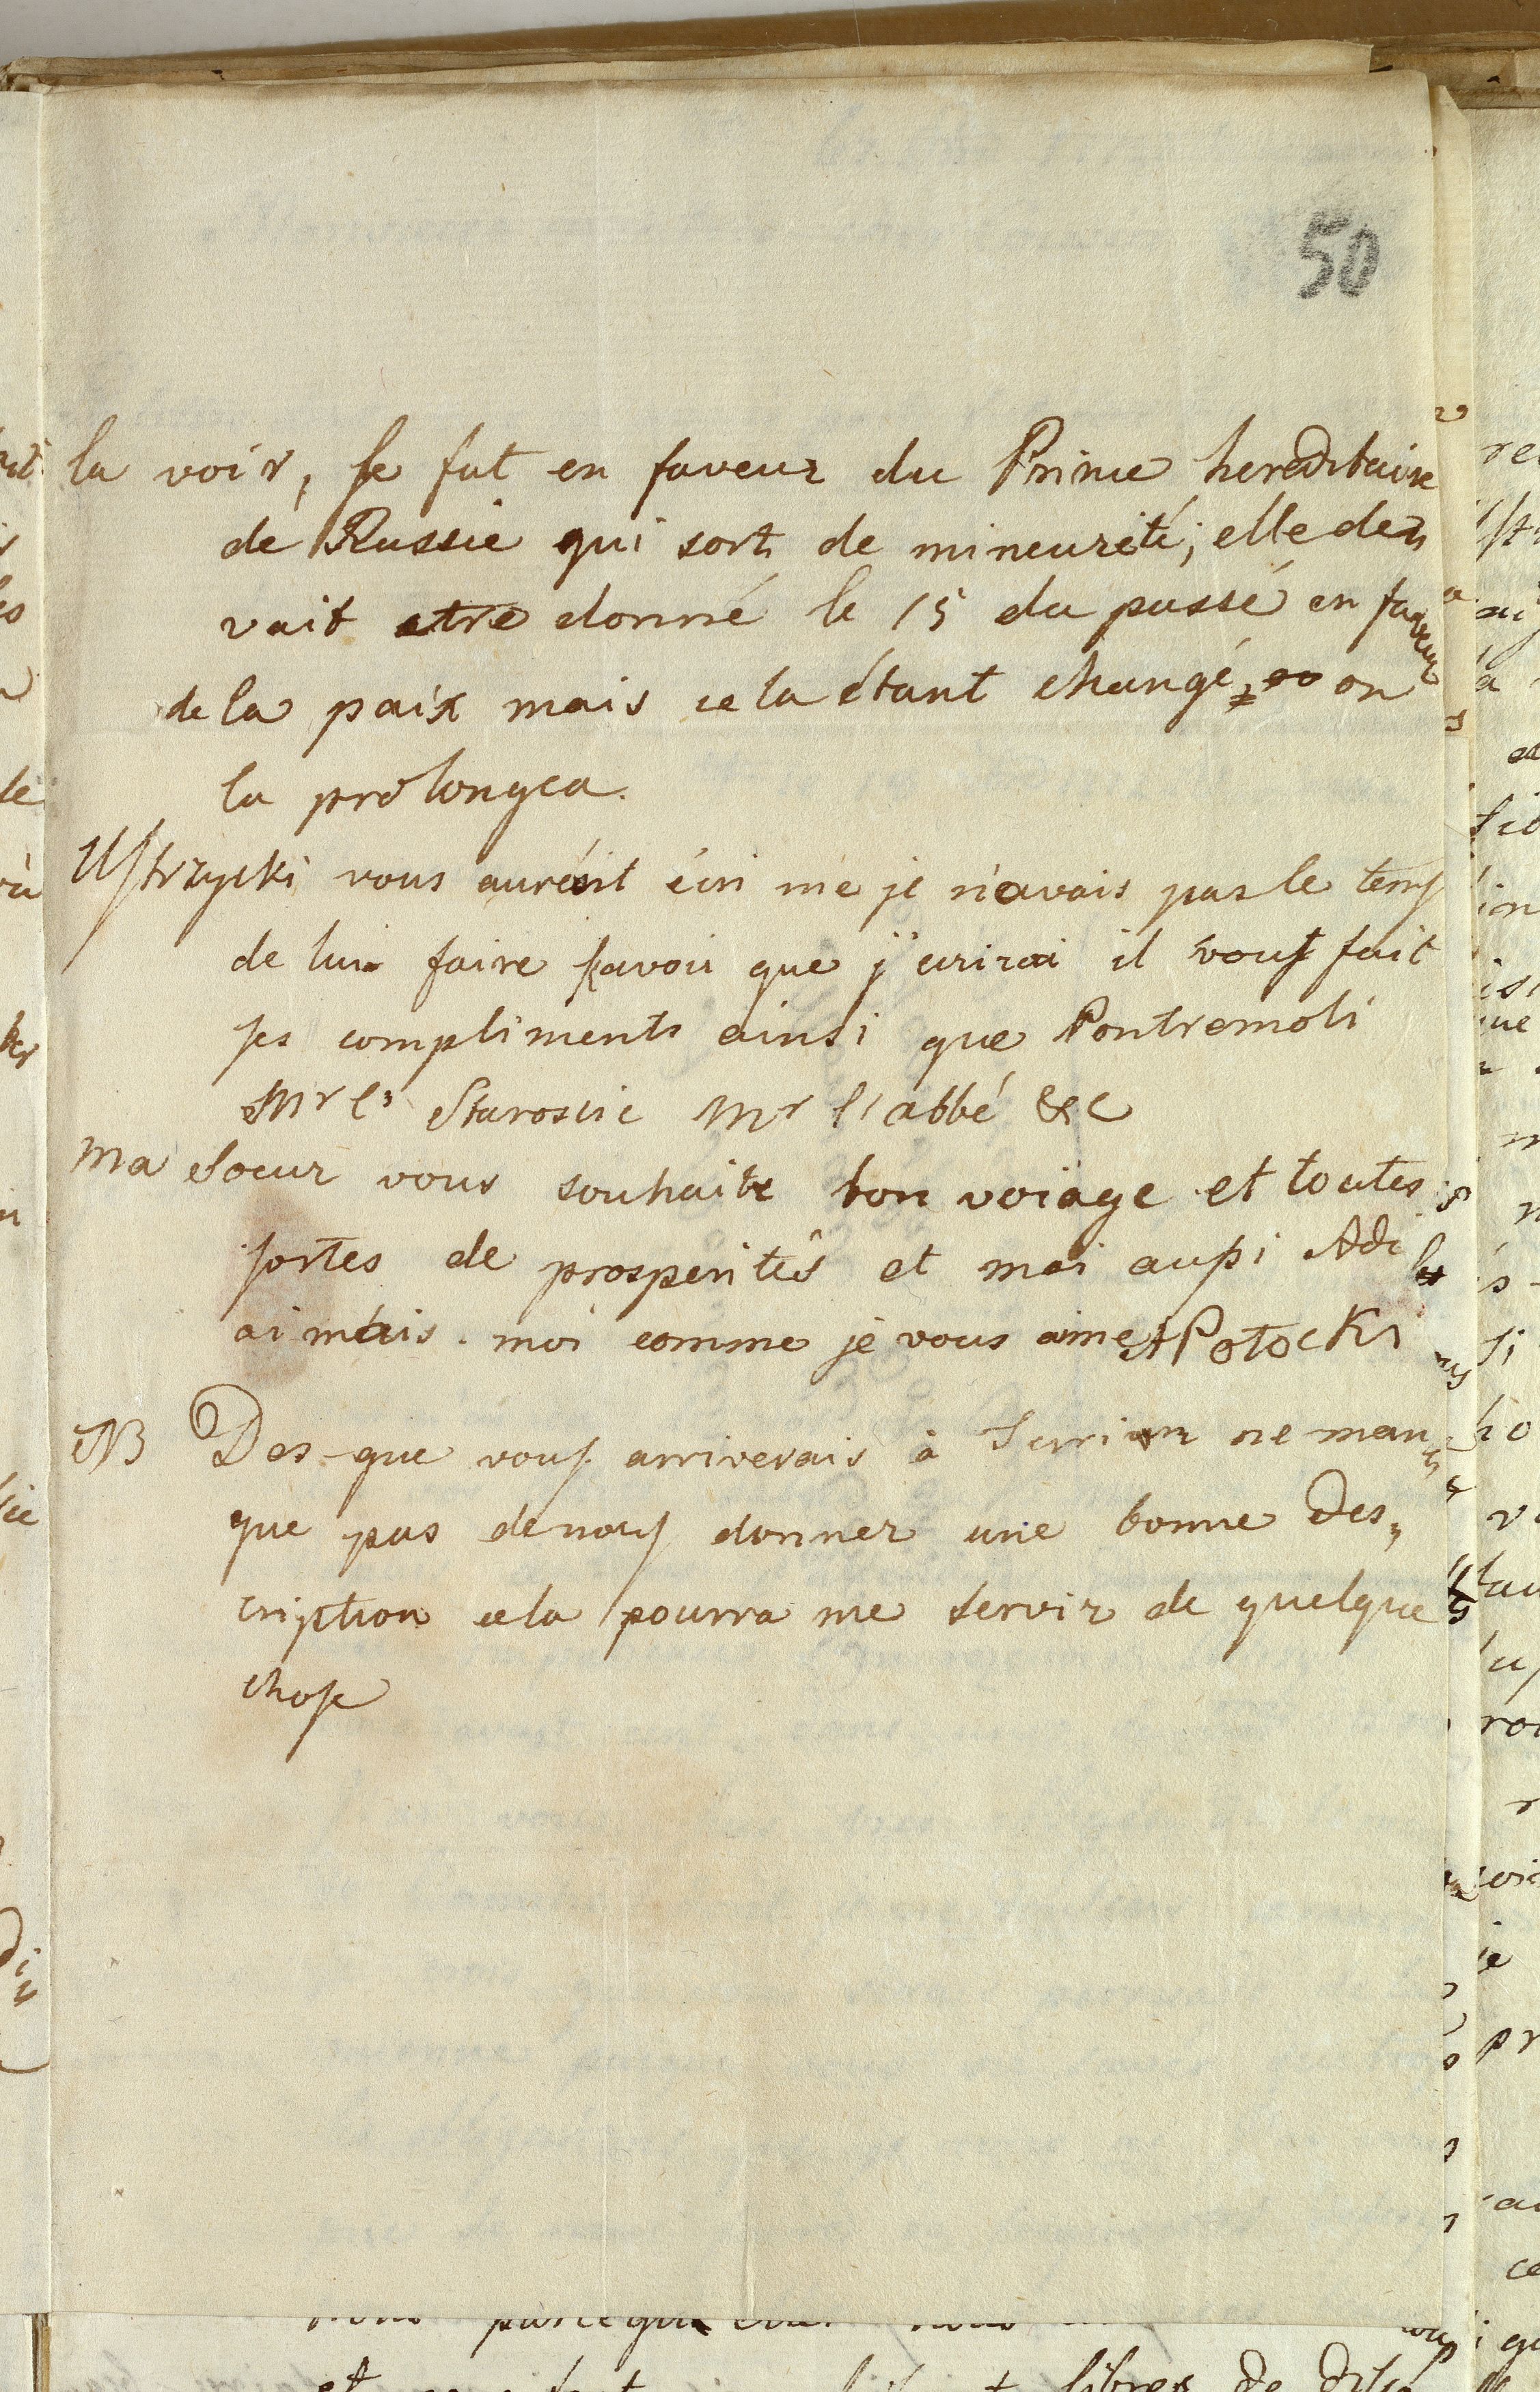 50
la voir, se fut en faveur du Prince hereditaire
de Russie qui sort de mineurité; elle de„
vait etre donné le 15 du passé en faveur
de la paix mais cela étant changé on
la prolongea.
Ustrzycki vous auroit écri me je n'avais pas le temps
de lui faire savoir que j'ecrirai il vous fait
ses compliments ainsi que Pontremoli
Mr le Staroste Mr l'abbé &c
Ma Soeur vous souhaite bon voïage et toutes
sortes de prosperités et moi aussi Adi
aimais-moi comme je vous aime A Potocki
NB Des-que vous arriverais à ne man„
que pas de nous donner une bonne Des„
cription cela pourra me servir de quelque
chose